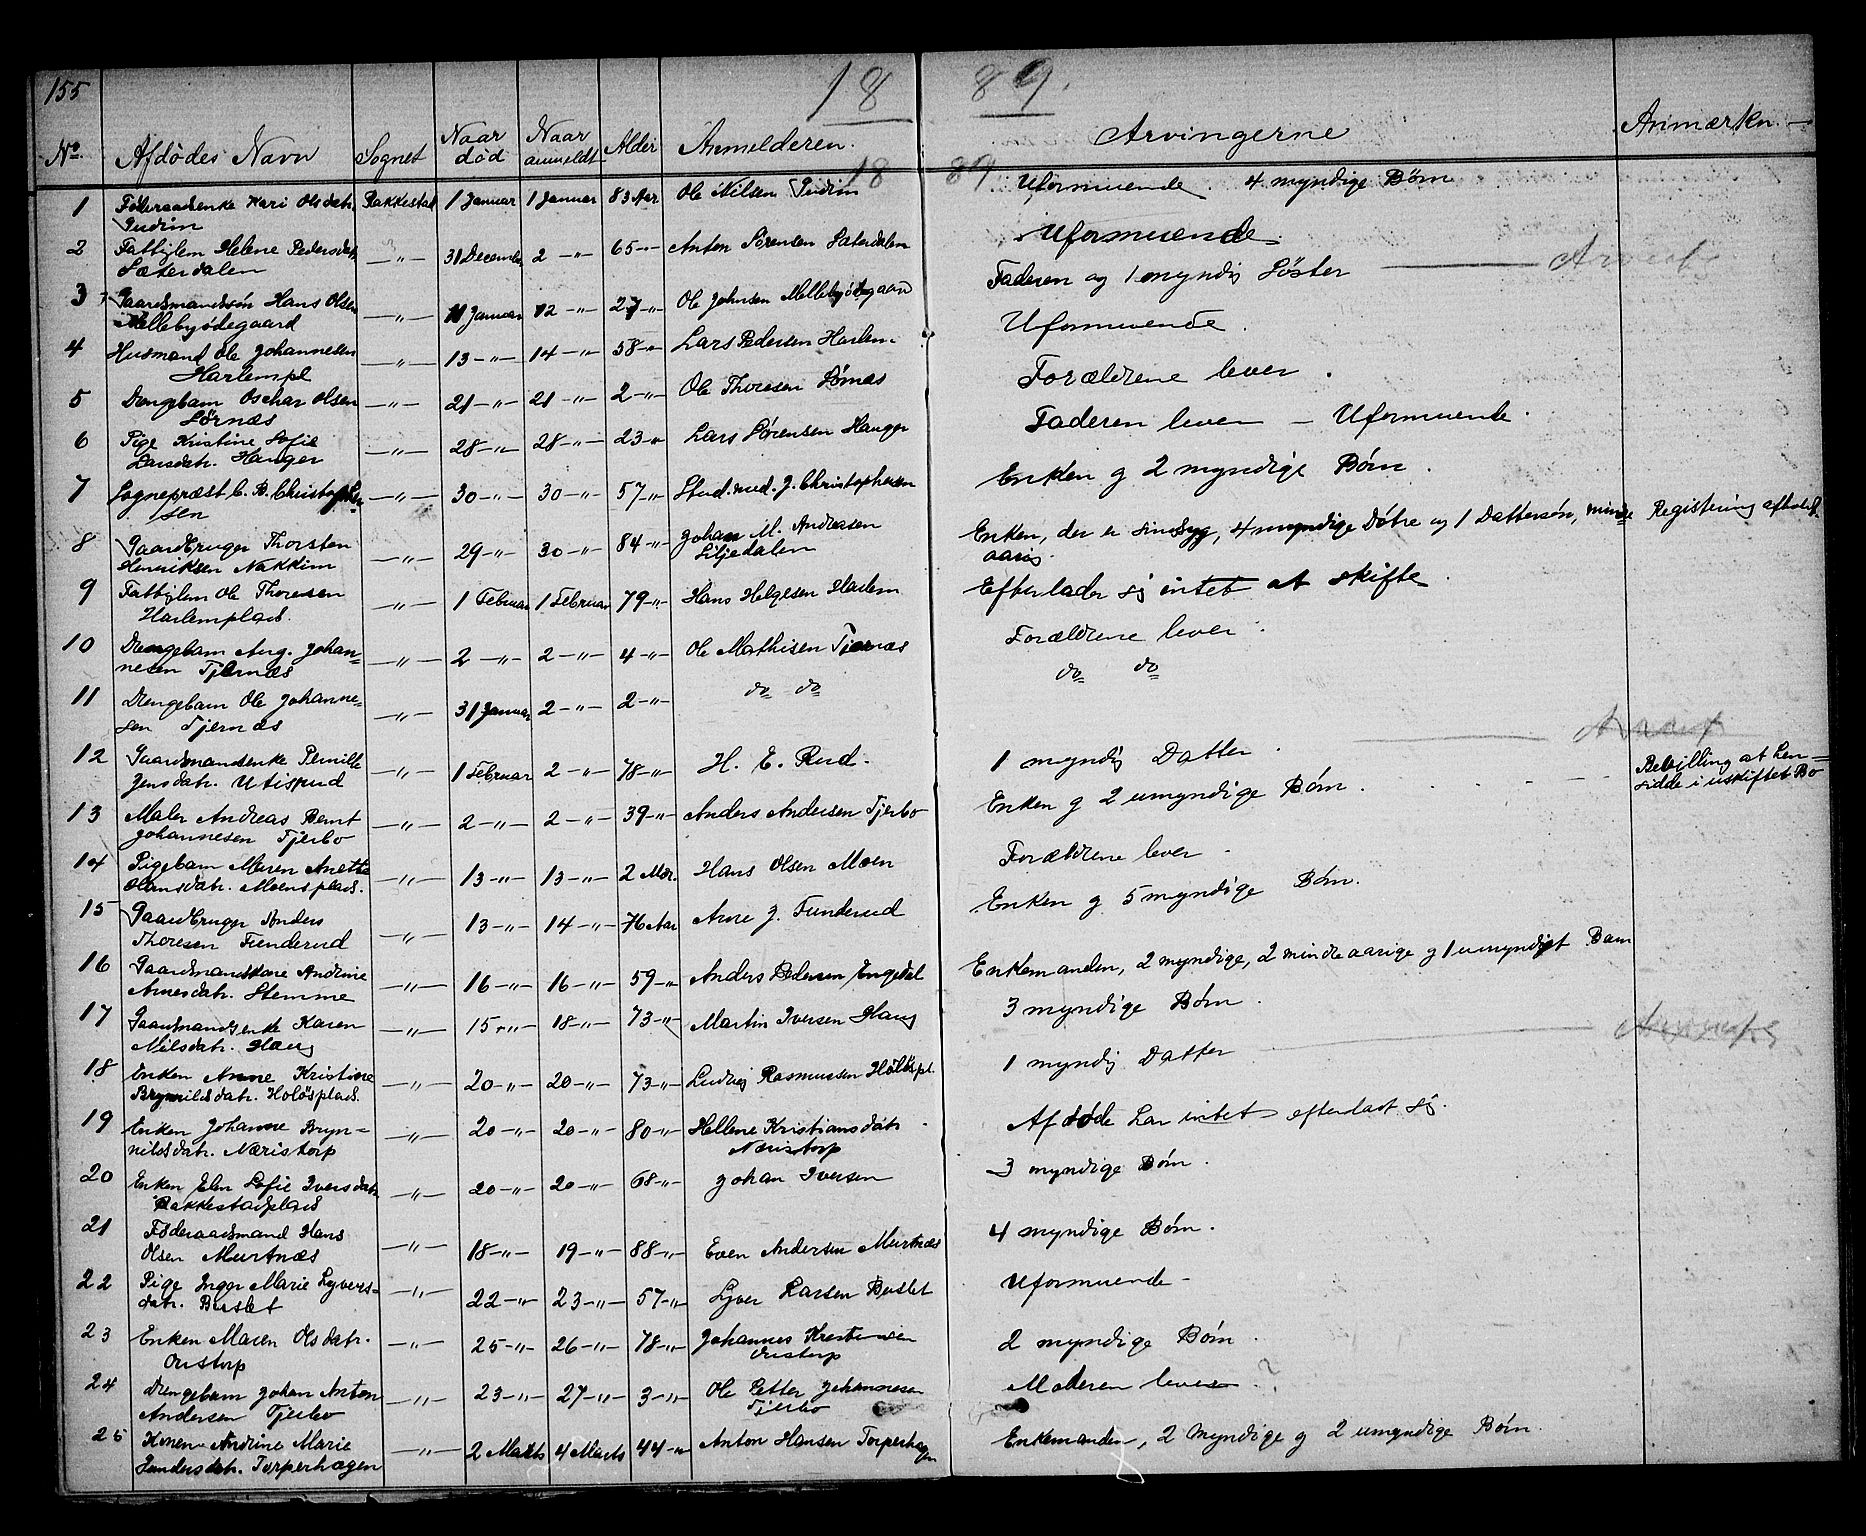 155
18 89.
No. Afdødes Navn Sognet Naar død Naar anmeldt Alder Anmelderen. Arvingerne Anmærkn.
18 89
1 Føderaadsenke Kari Olsdatr. Rakkestad 1 Januar 1 Januar 83 Aar Ole Nilsen Gudim Uformuende. 4 myndige Børn
Gudim
2 Fattiglem Helene Pedersdatr. —„— 31 December 2 —„— 65 —„— Anton Sørensen Sæterdalen Uformuende.
Sæterdalen
3 Gaardmandssøn Hans Olsen —„— 11 Januar 12 —„— 27 —„— Ole Johnsen Mellebyødegaard Faderen og 1 myndig Søster
Mellebyødegaard
4 Husmand Ole Johannesen —„— 13 —„— 14 —„— 58 —„— Lars Pedersen Harlem. Uformuende.
Harlempl
5 Drengebarn Oschar Olsen —„— 21 —„— 21 —„— 2 —„— Ole Thoresen Sørnæs Forældrene lever.
Sørnæs
6 Pige Kristine Sofie —„— 28 —„— 28 —„— 23 —„— Lars Sørensen Hauger Faderen lever — Uformuende.
Larsdatr. Hauger
7 Sognepræst C. B. Christopher= —„— 30 —„— 30 —„— 57 —„— Stud. med. J. Christophersen Enken g 2 myndige Børn.
sen
8 Gaardbruger Thorsten —„— 29 —„— 30 —„— 84 —„— Johan M. Andreasen Enken, der er sindsyg, 4 myndige Døtre og 1 Dattersøn, mindre Registrering afholdt.
Henriksen Nakkim Liljedalen aarig.
9 Fattiglem Ole Thoresen —„— 1 Februar 1 Februar 79 —„— Hans Helgesen Harlem Efterlader sig intet at skifte.
Harlemplads.
10 Drengebarn Aug. Johan= —„— 2 —„— 2 —„— 4 —„— Ole Mathisen Tjernæs Forældrene lever.
nesen Tjernæs
11 Drengebarn Ole Johanne= —„— 31 Januar 2 —„— 2 —„— do do do do
sen Tjernæs
12 Gaardmandsenke Pernille —„— 1 Februar 2 —„— 78 —„— H. E. Rud. 1 myndig Datter.
Jensdatr. Utisrud
13 Maler Andreas Bernt —„— 2 —„— 2 —„— 39 —„— Anders Andersen Tjerbo Enken g 2 umyndige Børn. Bevilling at hen=
Johannesen Tjerbo sidde i uskiftet Bo
14 Pigebarn Maren Anette —„— 13 —„— 13 —„— 2 Mdr. Hans Olsen Moen Forældrene lever.
Hansdatr. Moensplads.
15 Gaardbruger Anders —„— 13 —„— 14 —„— 76 Aar Arne J. Funderud Enken g 5 myndige Børn.
Thoresen Funderud
16 Gaardmandskone Andrine —„— 16 —„— 16 —„— 59 —„— Anders Pedersen Engedal Enkemanden, 2 myndige, 2 mindreaarige g 1 umyndigt Barn
Arnesdatr. Stemme
17 Gaardmandsenke Karen —„— 15 —„— 18 —„— 73 —„— Martin Iversen Haug 3 myndige Børn.
Nilsdatr. Haug
18 Enken Anne Kristine —„— 20 —„— 20 —„— 73 —„— Ludvig Rasmussen Holøspl. 1 myndig Datter
Brynnildsdatr. Holøsplads.
19 Enken Johanne Bryn= —„— 20 —„— 20 —„— 80 —„— Hellene Kristiansdatr. Afdøde har intet efterladt sig.
nildsdatr. Næristorp Næristorp
20 Enken Elen Sofie Iversdatr. —„— 20 —„— 20 —„— 68 —„— Johan Iversen 3 myndige Børn.
Rakkestadplads
21 Føderaadsmand Hans —„— 18 —„— 19 —„— 88 —„— Even Andersen Murtnæs 4 myndige Børn.
Olsen Murtnæs
22 Pige Inger Marie Lyvers= —„— 22 —„— 23 —„— 57 —„— Lyver Larsen Buslet Uformuende —
datr. Buslet
23 Enken Maren Olsdatr. —„— 25 —„— 26 —„— 78 —„— Johannes Kristensen 2 myndige Børn.
Oristorp Oristorp
24 Drengebarn Johan Anton —„— 23 —„— 27 —„— 3 —„— Ole Petter Johannesen Moderen lever. ?
Andersen Tjerbo Tjerbo
25 Konen Andrine Marie —„— 2 Marts 4 Marts 44 —„— Anton Hansen Torperhagen Enkemanden, 2 myndige g 2 umyndige Børn.
Gundersdatr. Torperhagen